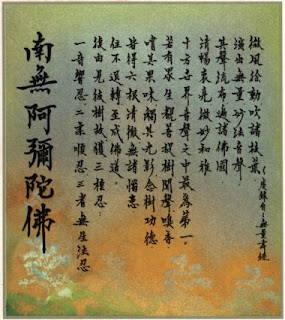 微風徐動吹諸枝葉
(虔錄自:無量壽經
演出無量妙法音聲
其聲流布遍諸佛國
清暢哀亮微妙和雅
十方世界音聲之中最為第一。
若有眾生觀菩提樹聞聲嗅香
嚐其果味觸其光影念樹功德
皆得六根清徹無諸惱患
住不退轉至成佛道。
復由見彼樹故獲三種忍:
一音響忍二柔順忍三者無生法忍
南無阿彌陀佛